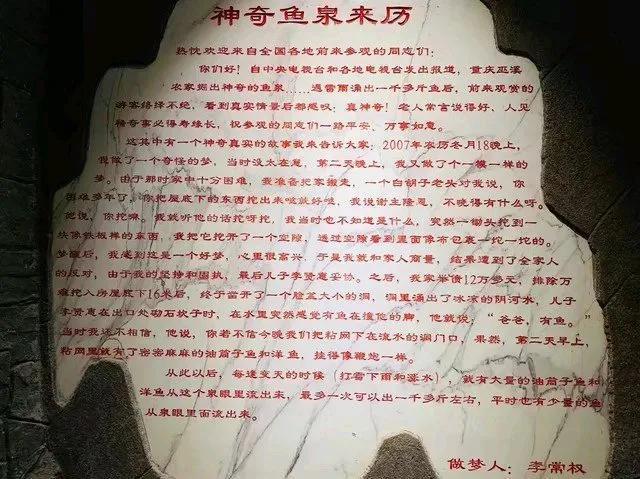 神奇鱼泉来历
热忱欢迎来自全国各地前来参观的同志们：
你们好！自中央电视台和各地电视台发出报道，重庆巫溪
农家掘出神奇的鱼泉……遇雷雨涌出一千多斤鱼后，前来观赏的
游客络绎不绝，看到真实情景后都感叹，真神奇！老人常言说得好、人见
稀奇事必得寿缘长，祝参观的同志们一路平安、万事如意。
这其中有一个神奇真实的故事我来告诉大家：2007年农历冬月18晚上，
我做了一个奇怪的梦，当时没太在意，第二天晚上，我又做了个一模一样的
梦。由于那时家中十分困难，我准备把家搬走，一个白胡子老头对我说，你
困难多年了，你把屋底下的东西挖出来就好哒，我说谢主隆恩，不晓得有什么呀。
他说，你挖嘛。我就听他的话挖呀挖，我当时也不知道是什么，突然一锄头挖到一
块像铁板样的东西，我把它挖开了一个空隙，透过空隙看到里面像布包裹一坨一坨的。
梦醒后，我感到这是一个好梦，心里很高兴，于是我就和家人商量，结果遭到了全家人
的反对，由于我的坚持和固执，最后儿子李贤惠妥协。之后，我家举债12万多元，排除万
难挖入房屋底下16米后，终于凿开了一个脸盆大小的洞，洞里涌出了冰凉的阴河水，儿子
李贤惠在出口处砌石坎子时，在水里突然感觉有鱼在撞他的脚，他就说，“爸爸，有鱼。”
当时我还不相信，他说，你若不信今晚我们把粘网下在流水的洞门口，果然，第二天早上，
粘网里就有了密密麻麻的油筒子鱼和洋鱼，挂得像鞭炮一样。
从此以后，每逢变天的时候（打雷下雨和涨水），就有大量的油筒子鱼和
洋鱼从这个泉眼里流出来，最多一次可以出一千多斤左右，平时也有少量的鱼
从泉眼里面流出来。
做梦人：李常权